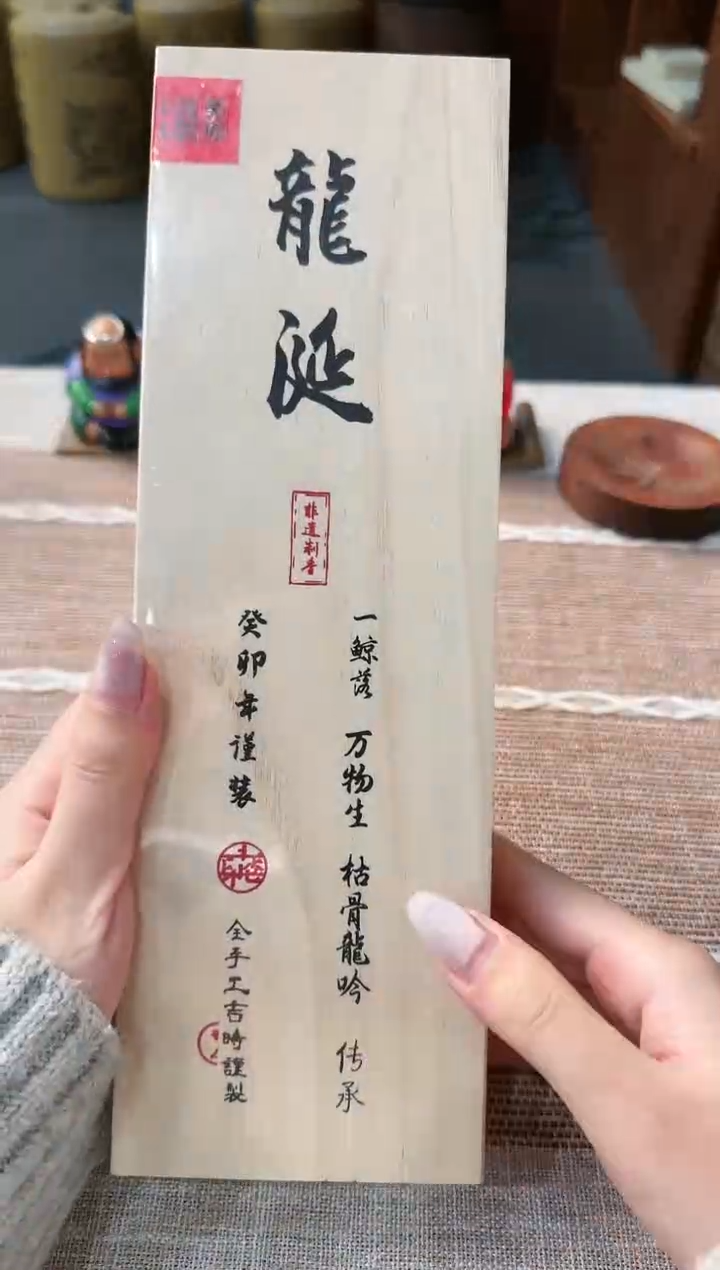 龍
涎
非遗制香
一鲸落 万物生 枯骨龍吟 传承
癸卯年谨装
全手工吉時謹製